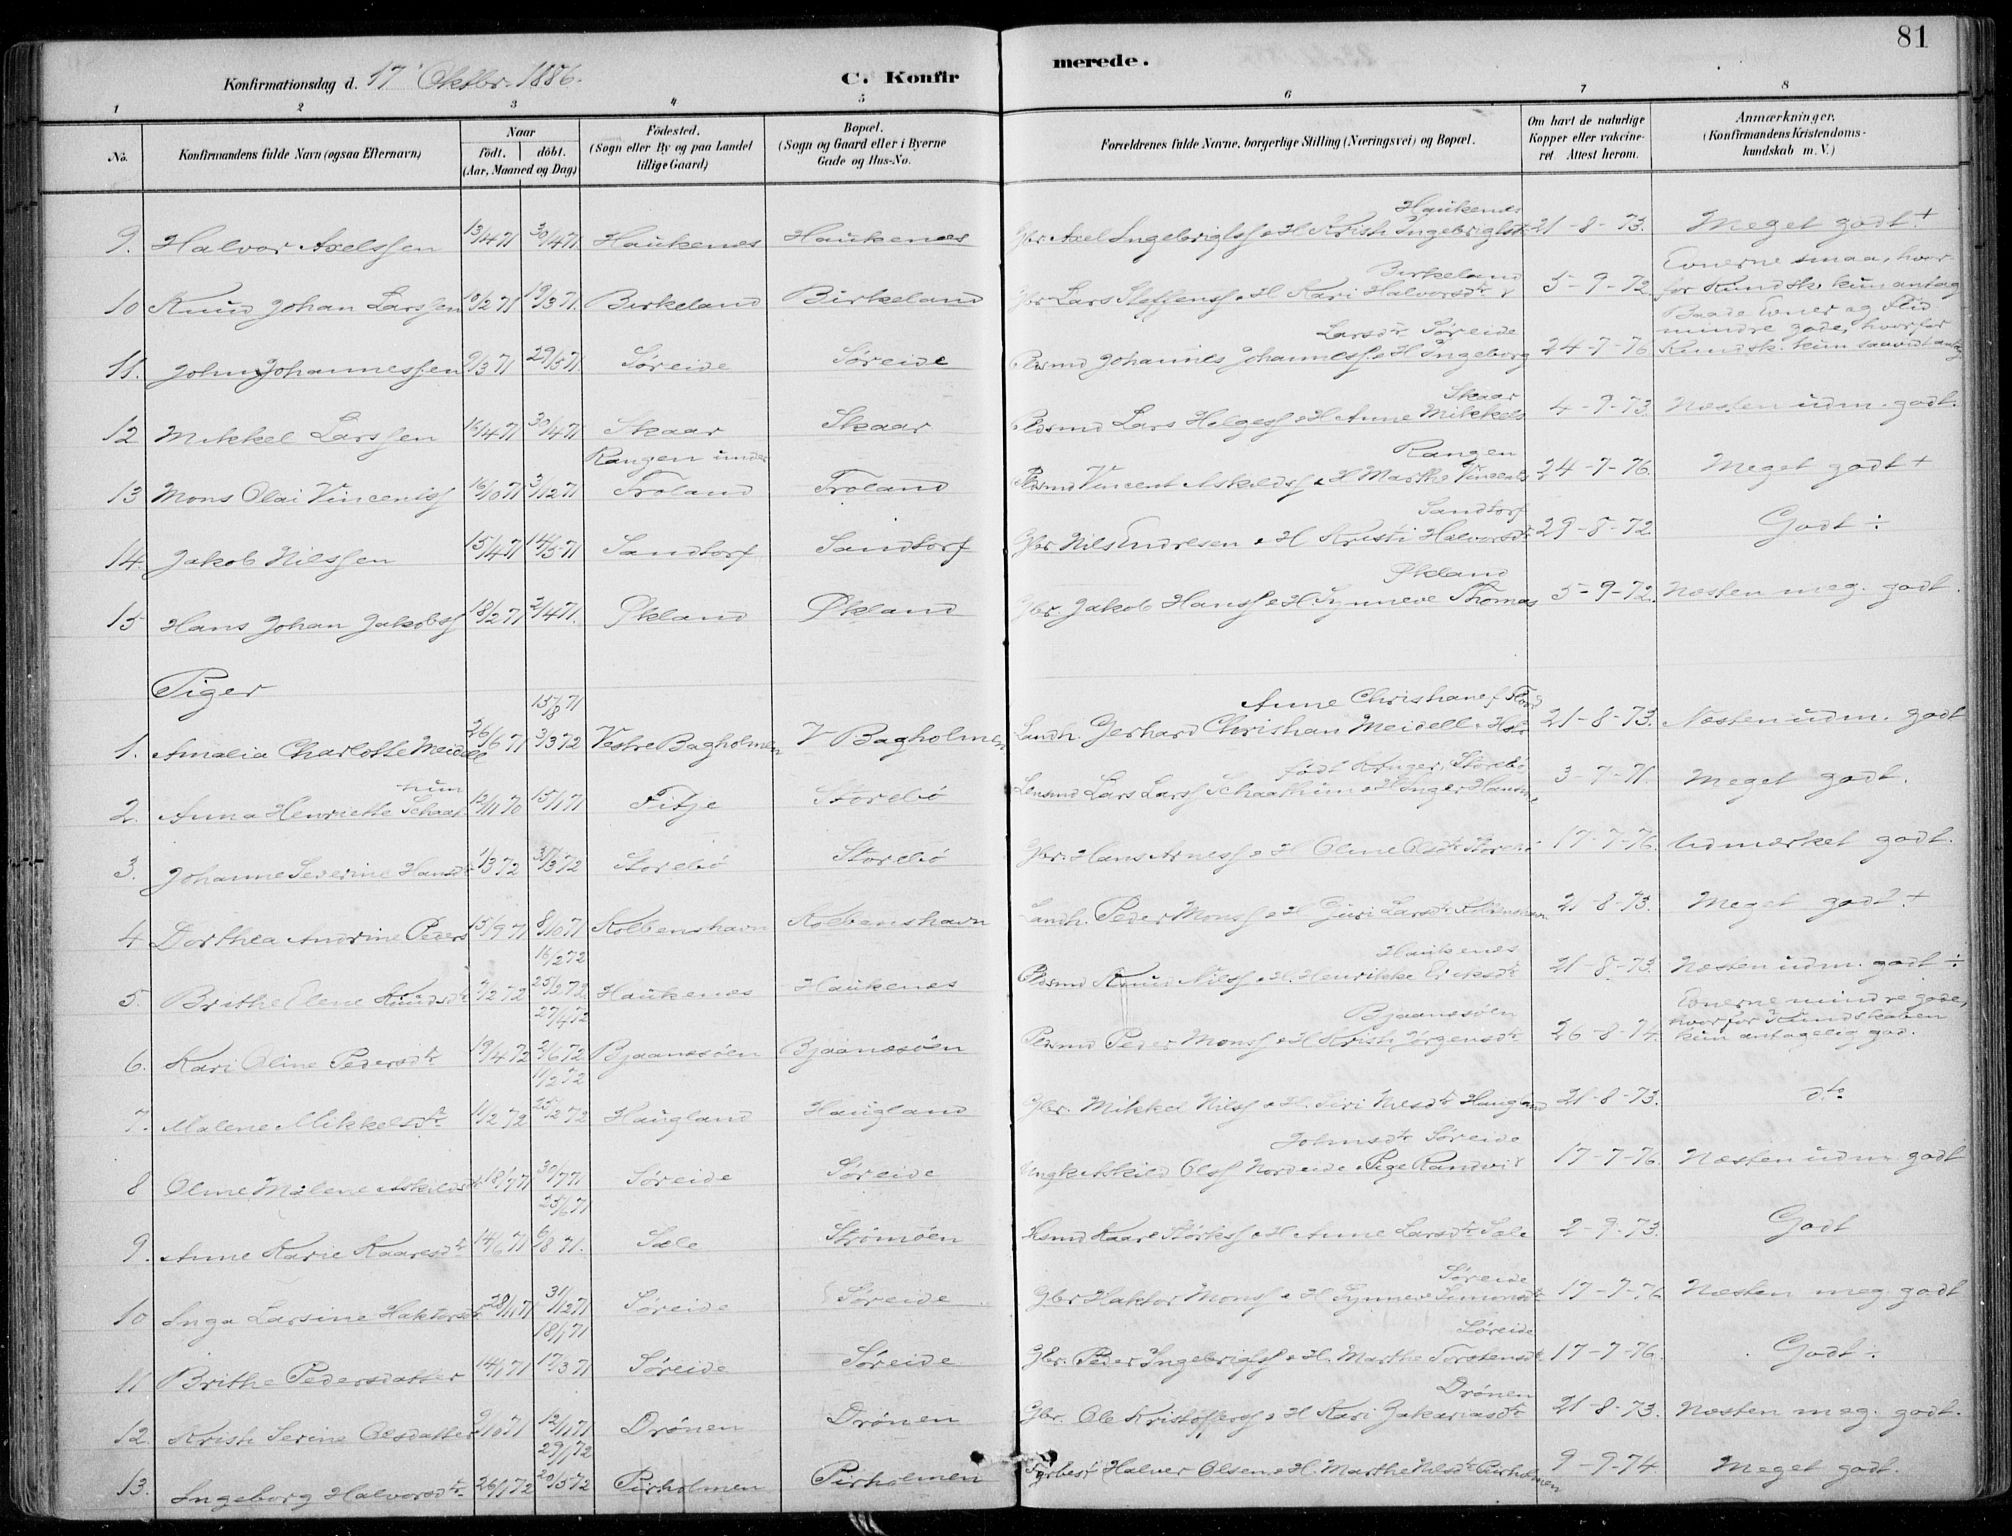 81
Konfirmationsdag d. 17 Oktbr. 1886.
C. Konfirmerede.
1 2 3 4 5 6 7 8
No. Konfirmandens fulde Navn (ogsaa Efternavn) Naar födt. döbt. (Aar, Maaned og Dag) Födested. (Sogn eller By og paa Landet tillige Gaard) Bopæl. (Sogn og Gaard eller i Byerne Gade og Hus-No. Forældrenes fulde Navne, borgerlige Stilling (Næringsvei) og Bopæl. Om havt de naturlige Kopper eller vakcineret. Attest herom. Anmærkninger. (Konfirmandens Kristendomskundskab m. V.)
9. Halvor Axelssen 13/4 71 30/4 71 Haukenes Haukenes Gbr. Axel Ingebrigtss & H. Kristi Ingebrigtsdt Haukenes 21-8-73. Meget godt +
10 Knud Johan Larssen 10/2 71 19/3 71. Birkeland Birkeland Gbr. Lars Steffenss & H. Kari Halvorsdtr Birkeland 5-9-72 Evnerne smaa, hvorfor Kundsk. kun antag
11. John Johannessen 9/3 71 29/5 71 Søreide Søreide Pdsmd Johannes Johanness & H Ingeborg Larsdtr Søreide 24-7-76 Baade Evner og Flid mindre gode, hvorfor Kundsk. kun saavidt antag.
12 Mikkel Larssen 16/4 71 30/4 71 Skaar Skaar Pdsmd Lars Helgess & H Anne Mikkels Skaar 4-9-73. Næsten udm. godt.
13 Mons Olai Vincentss 16/10 71 3/12 71 Rangen under Troland Troland Pdsmd Vincent Askildss & H Marthe Vincents Rangen 24-7-76. Meget godt +
14. Jakob Nilssen 15/4 71 14/5 71 Sandtorf Sandtorf Gbr Nils Endresen & H Kristi Halvorsdtr Sandtorf 29-8-72 Godt ÷
15 Hans Johan Jakobss 18/2 71 2/4 71. Økland Økland Gbr. Jakob Hanss & H. Synneve Thomas Økland 5-9-72. Næsten meg. godt.
Piger
1. Amalia Charlotte Meidell 26/6 71 15/8 71 3/3 72 Vestre Bagholmen V Bagholmen Landh. Gerhard Christian Meidell & Hstr Anne Christiane f. 21-8-73. Næsten udm. godt
2. Anna Henriette Schaathun 12/11 70 15/1 71 Fitje Storebö Lensmd Lars Larss Schaathun & H Inger Hansine født Krüger, Storebö 3-7-71. Meget godt.
3. Johanne Severine Hansdtr 1/3 72 31/3 72 Storebö Storebö Gbr. Hans Arness & H Oline Olsdtr Storebö 17-7-76. Udmærket godt.
4 Dorthea Andrine Peders 15/9 71 8/10 71 Kolbenshavn Kolbenshavn Landh. Peder Monss & H Guri Larsdtr Kolbenshavn 21-8-73. Meget godt +
5. Brithe Elene Knudsdtr 9/2 72 16/2 72 25/2 72 Haukenes Haukenes Pdsmd Knud Nilss & H. Henrikke Eriksdtr Haukenes 21-8-73. Næsten udm. godt ÷
6. Kari Oline Pedersdtr 19/4 72 27/4 72 2/6 72 Bjaanesöen Bjaanesöen Pdsmd Peder Monss & H Kristi Jørgensdtr Bjaanesöen 26-8-74. Evnerne mindre gode, hvorfor Kundskaben kun antagelig god.
7. Malene Mikkelsdtr 11/2 72 11/2 72 25/2 72 Haugland Haugland Gbr. Mikkel Nilss & H. Siri Nilsdtr Haugland 21-8-73. dto
8 Oline Malene Askildsdtr 18/7 71 30/7 71 Søreide Søreide Ungk Askild Olss Nordeide & Pige Randvi Johnsdtr Søreide 17-7-76. Næsten udm. godt
9. Anne Karie Kaaresdtr 14/6 71 25/6 71 6/8 71. Sæle Strømöen Hsmd Kaare Størkss & H Anne Larsdtr Sæle 2-9-73. Godt
10 Inga Larsine Haktorsdtr 28/11 71 31/12 71 Søreide Søreide Gbr Haktor Monss & H. Synneve Simonsdtr Søreide 17-7-76 Næsten meg. godt
11 Brithe Pedersdatter 14/1 71 18/1 71 17/3 71 Søreide Søreide Gbr. Peder Ingebrigtss & H. Marthe Torstensdtr Søreide 17-7-76. Godt ÷
12. Kristi Serine Olsdatter 9/10 71 12/11 71 Drönen Drönen Gbr. Ole Kristofferss & H Kari Zakariasdtr Drönen 21-8-73. Næsten meg. godt.
13. Ingeborg Halvorsdtr. 26/1 72 29/1 72 20/5 72 Pirholmen Pirholmen Fyrbest Halver Olsen & H. Marthe Nilsdtr Pirholmen 9-9-74 Meget godt.